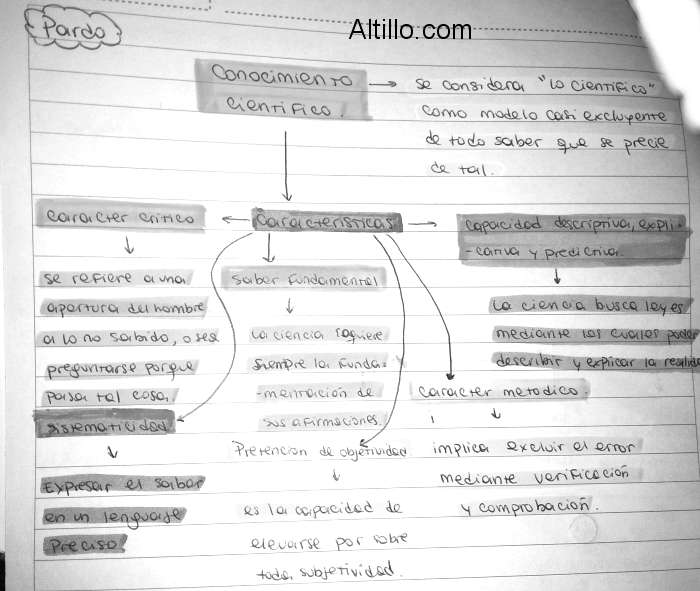 Pardo
Altillo.com
Conocimiento
científico.
se considera "lo científico"
como modelo casi excluyente
de todo saber que se precie
de tal.
caracter crítico
Características
capacidad descriptiva, expli-
-cativa y predictiva.
se refiere a una
apertura del hombre
a lo no sabido, o sea
preguntarse porque
pasa tal cosa.
saber fundamental
la ciencia requiere
siempre la funda-
-mentación de
sus afirmaciones.
La ciencia busca leyes
mediante las cuales poder
describir y explicar la realidad
caracter metodico.
implica excluir el error
mediante verificación
y comprobación.
sistematicidad
Expresar el saber
en un lenguaje
preciso
Pretencion de objetividad
es la capacidad de
elevarse por sobre
toda subjetividad.